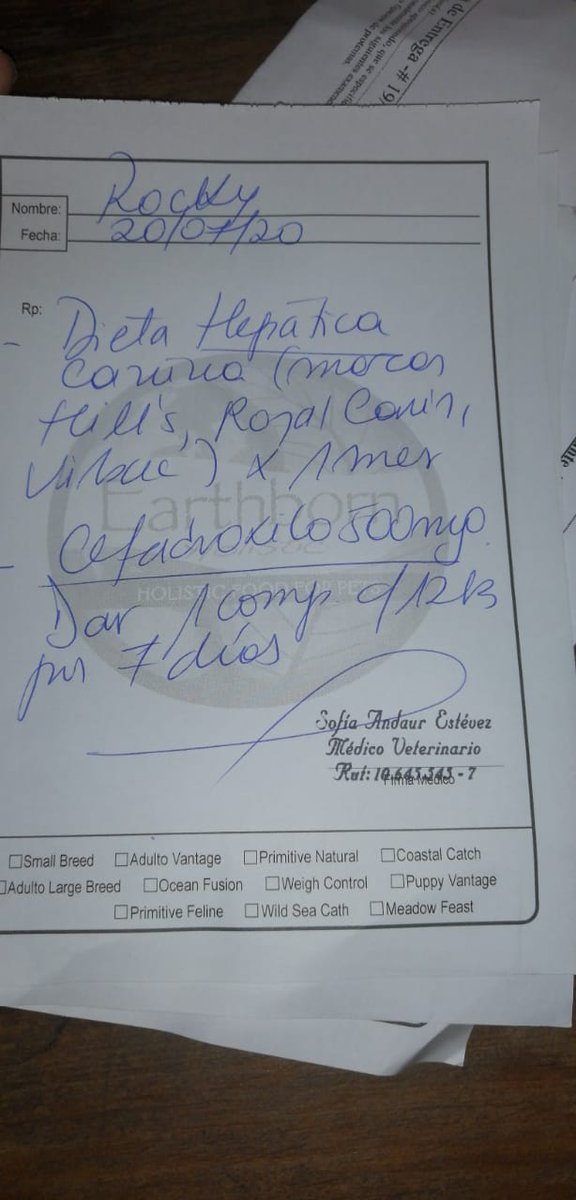 de Entrega - # 19/
Nombre: Rocky
Fecha: 20/07/20
Rp:
- Dieta Hepática
Canina (marcas
Hill's, Royal Canin,
Virbac) x 1 mes
Earthborn
HOLISTIC FOOD FOR PETS
- Cefadroxilo 500mg.
Dar 1 comp c/12 hs
por 7 días
Sofía Andaur Estévez
Médico Veterinario
Rut: 10.645.545-7
Firma Médico
☐Small Breed ☐Adulto Vantage ☐Primitive Natural ☐Coastal Catch
☐Adulto Large Breed ☐Ocean Fusion ☐Weigh Control ☐Puppy Vantage
☐Primitive Feline ☐Wild Sea Cath ☐Meadow Feast